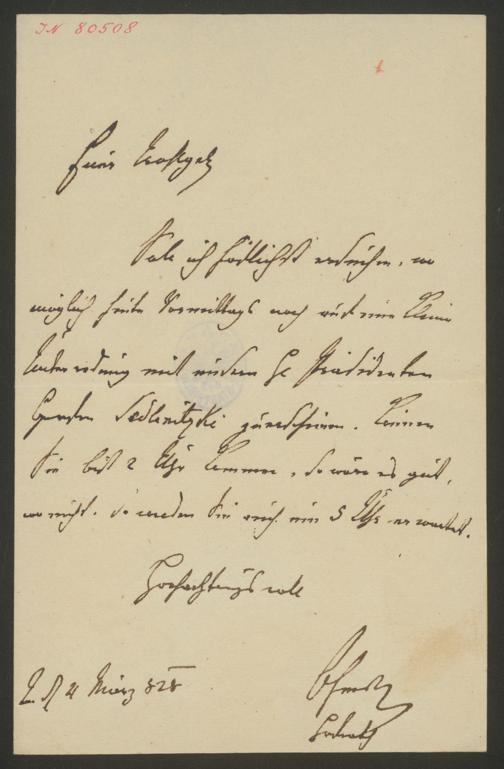 IN 80508
1
Euer
Soll ich höflichst ersuchen, wo
möglich heute Vormittags noch auf eine kleine
Unterredung mit unserm H Präsidenten
Grafen Sedlnitzki zu erscheinen. Können
Sie bis 2 Uhr kommen, so wäre es gut,
wo nicht, so werden Sie auch um 5 Uhr erwartet.
Hochachtungsvoll
21 März 828